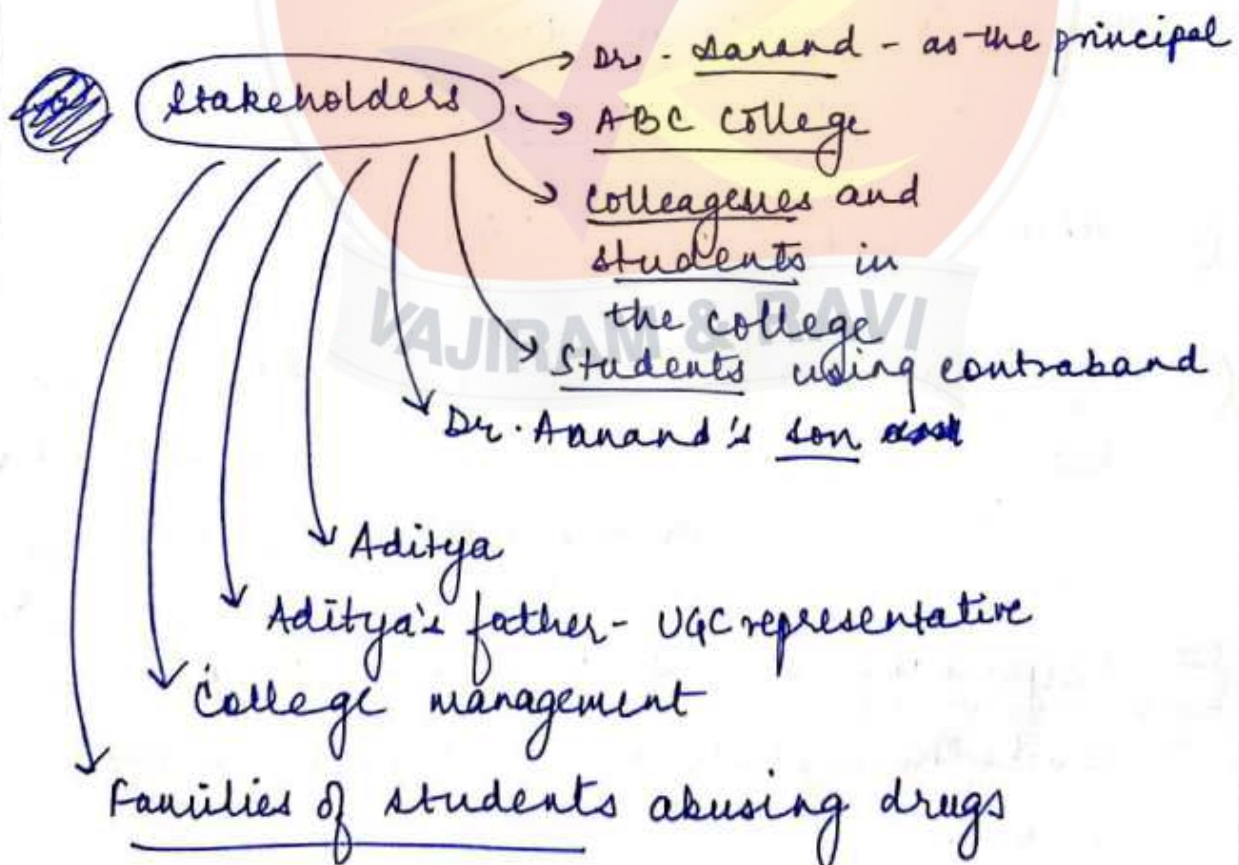 Stakeholders
Dr. Sanand - as the principal
ABC College
Colleagues and
students in
the college
Students using contraband
Dr. Aanand's son
Aditya
Aditya's father - UGC representative
College management
Families of students abusing drugs
VAJIRAM & RAVI